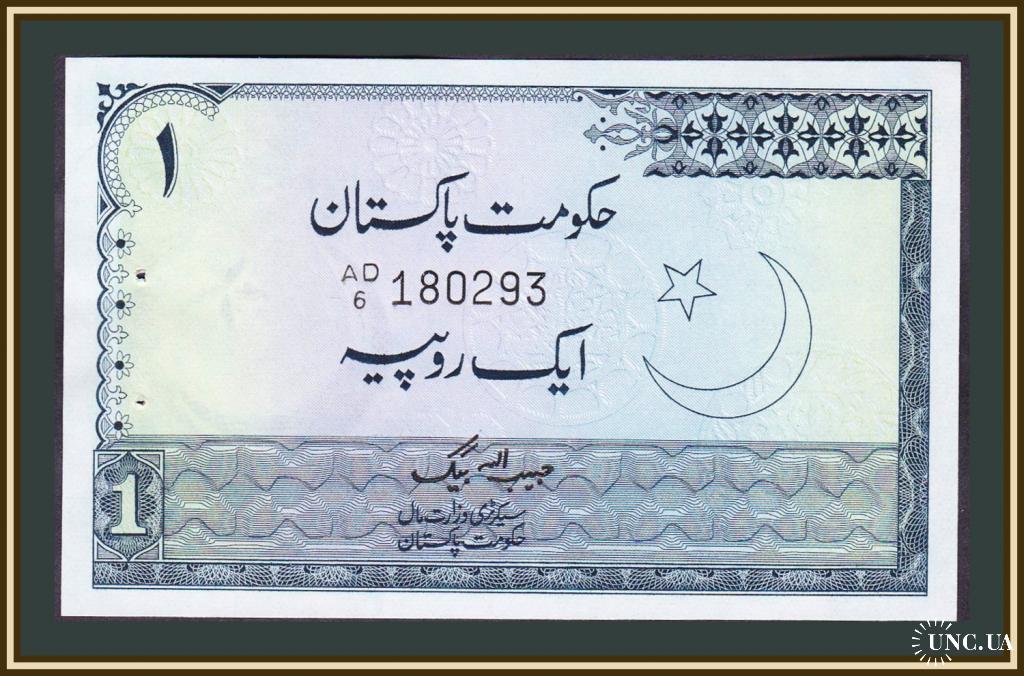 ۱
حکومت پاکستان
AD/6 180293
ایک روپیہ
حبیب اللہ بیگ
سیکرٹری وزارت مال
حکومت پاکستان
1
UNC.UA